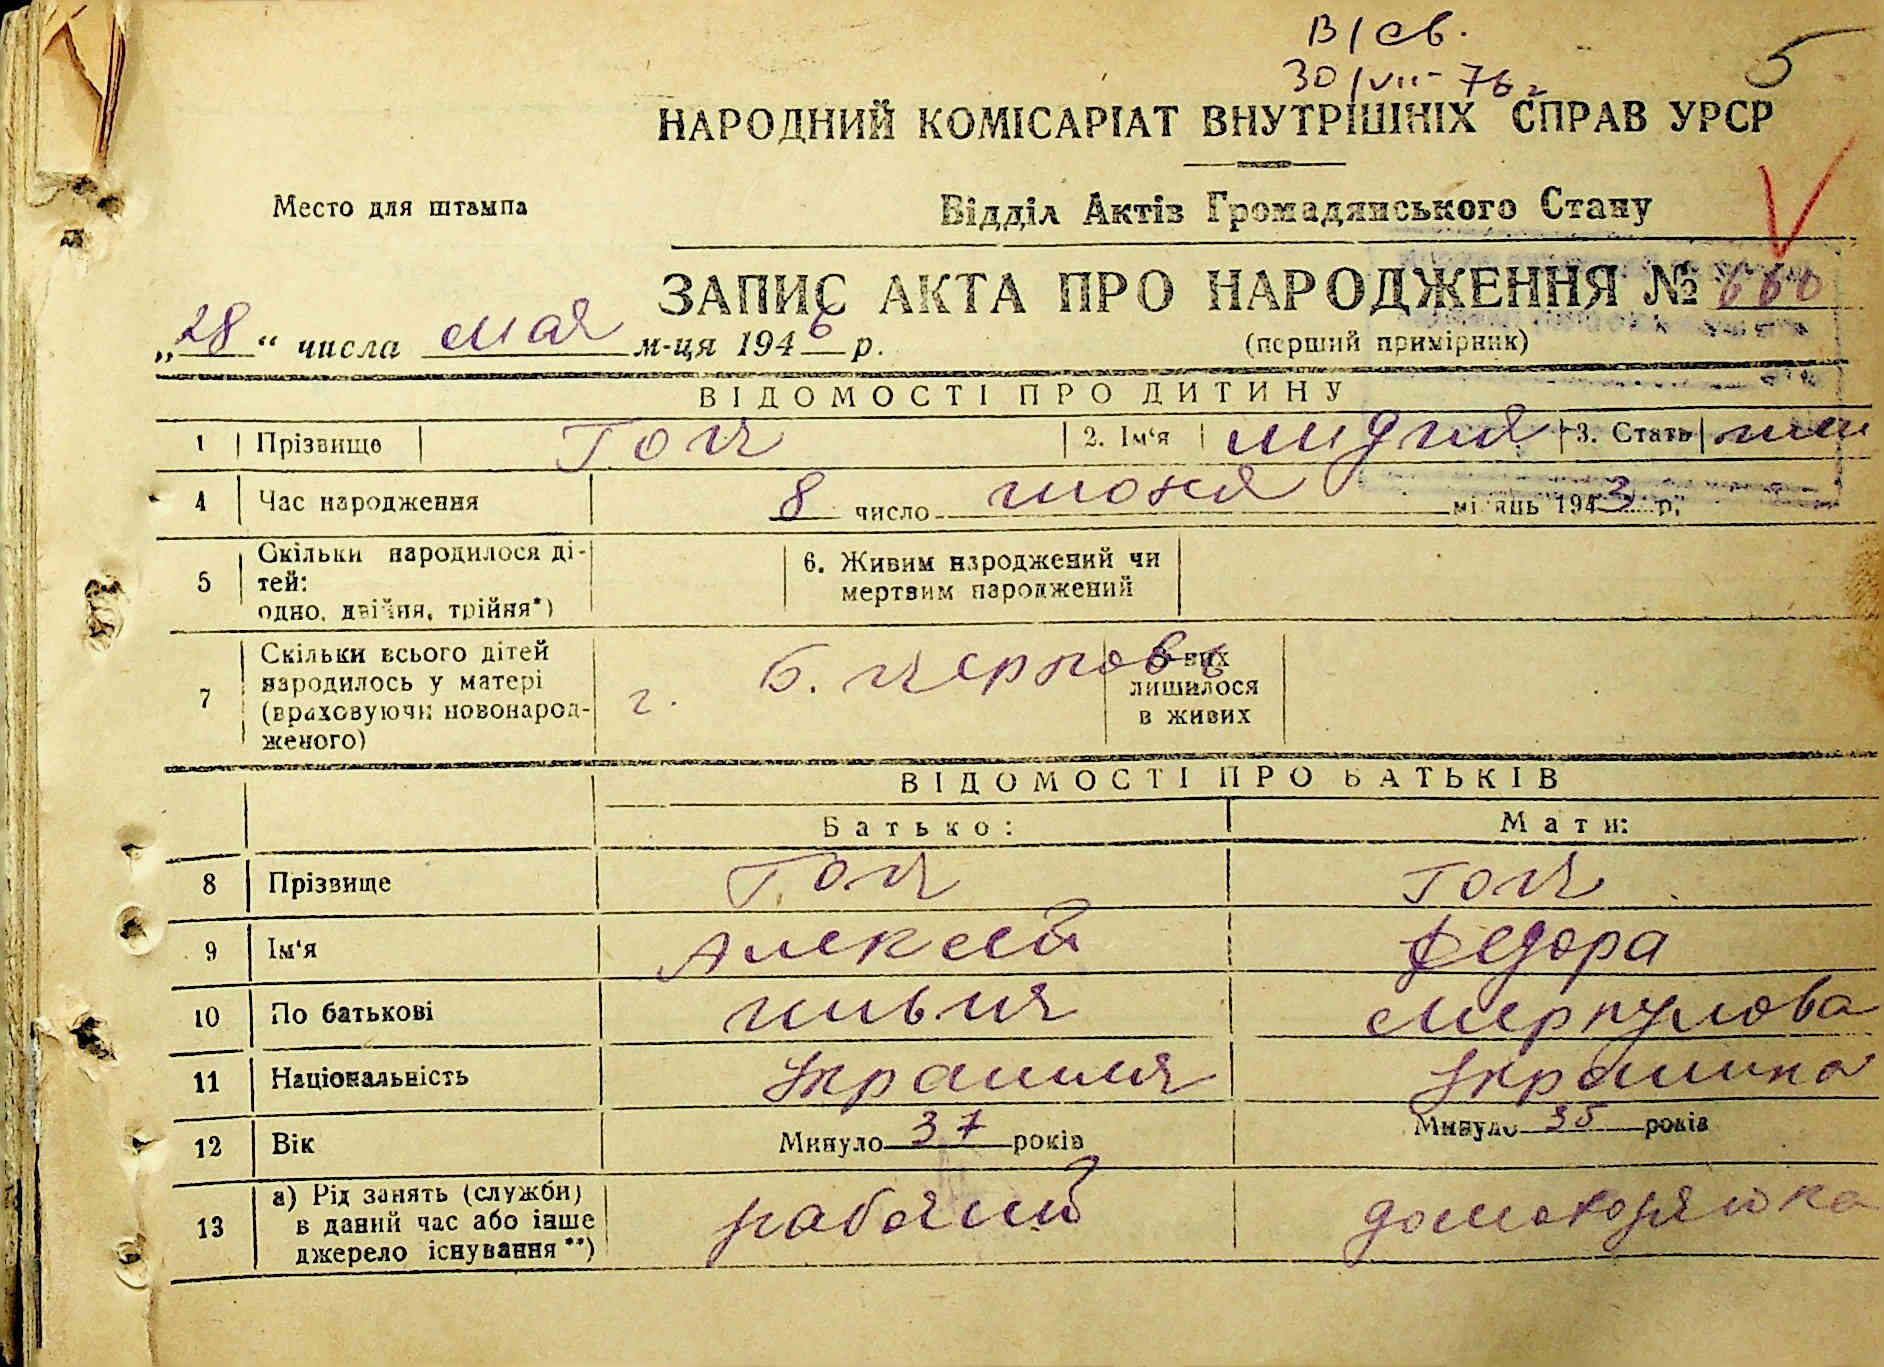 В/св.
30/VII-76 г
5
НАРОДНИЙ КОМІСАРІАТ ВНУТРІШНІХ СПРАВ УРСР
Место для штампа
Відділ Актів Громадянського Стану
ЗАПИС АКТА ПРО НАРОДЖЕННЯ № 660
„28“ числа мая м-ця 1946 р.
(перший примірник)
ВІДОМОСТІ ПРО ДИТИНУ
1 Прізвище Гоч 2. Ім'я Лидия 3. Стать
4 Час народження 8 число июня місяць 1943 р.
5 Скільки народилося ді-
тей:
одно, двійня, трійня*)
6. Живим народжений чи
мертвим народжений
7 Скільки всього дітей
народилось у матері
(враховуючи новонарод-
женого)
г.
З них
лишилося
в живих
ВІДОМОСТІ ПРО БАТЬКІВ
Батько: Мати:
8 Прізвище Гоч Гоч
9 Ім'я Алексей Федора
10 По батькові Ильич Меркулова
11 Національність Украинка
12 Вік Минуло 37 років Минуло 35 років
13 а) Рід занять (служби)
в даний час або інше
джерело існування **)
рабочий домохозяйка